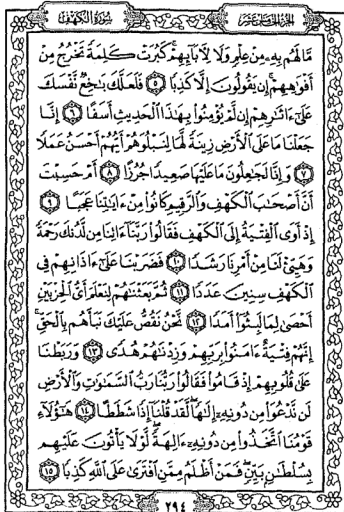 سُورَةُ الكَهْفِ الجُزْءُ الخَامِسَ عَشَرَ
مَّا لَهُم بِهِۦ مِنْ عِلْمٍ وَلَا لِأَبَآئِهِمْ كَبُرَتْ كَلِمَةً تَخْرُجُ مِنْ
أَفْوَٰهِهِمْ إِن يَقُولُونَ إِلَّا كَذِبًا ٥ فَلَعَلَّكَ بَٰخِعٌ نَّفْسَكَ
عَلَىٰٓ ءَاثَٰرِهِمْ إِن لَّمْ يُؤْمِنُوا۟ بِهَٰذَا ٱلْحَدِيثِ أَسَفًا ٦ إِنَّا
جَعَلْنَا مَا عَلَى ٱلْأَرْضِ زِينَةً لَّهَا لِنَبْلُوَهُمْ أَيُّهُمْ أَحْسَنُ عَمَلًا
٧ وَإِنَّا لَجَٰعِلُونَ مَا عَلَيْهَا صَعِيدًا جُرُزًا ٨ أَمْ حَسِبْتَ
أَنَّ أَصْحَٰبَ ٱلْكَهْفِ وَٱلرَّقِيمِ كَانُوا۟ مِنْ ءَايَٰتِنَا عَجَبًا ٩
إِذْ أَوَى ٱلْفِتْيَةُ إِلَى ٱلْكَهْفِ فَقَالُوا۟ رَبَّنَآ ءَاتِنَا مِن لَّدُنكَ رَحْمَةً
وَهَيِّئْ لَنَا مِنْ أَمْرِنَا رَشَدًا ١٠ فَضَرَبْنَا عَلَىٰٓ ءَاذَانِهِمْ فِى
ٱلْكَهْفِ سِنِينَ عَدَدًا ١١ ثُمَّ بَعَثْنَٰهُمْ لِنَعْلَمَ أَىُّ ٱلْحِزْبَيْنِ
أَحْصَىٰ لِمَا لَبِثُوٓا۟ أَمَدًا ١٢ نَّحْنُ نَقُصُّ عَلَيْكَ نَبَأَهُم بِٱلْحَقِّ
إِنَّهُمْ فِتْيَةٌ ءَامَنُوا۟ بِرَبِّهِمْ وَزِدْنَٰهُمْ هُدًى ١٣ وَرَبَطْنَا
عَلَىٰ قُلُوبِهِمْ إِذْ قَامُوا۟ فَقَالُوا۟ رَبُّنَا رَبُّ ٱلسَّمَٰوَٰتِ وَٱلْأَرْضِ
لَن نَّدْعُوَا۟ مِن دُونِهِۦٓ إِلَٰهًا لَّقَدْ قُلْنَآ إِذًا شَطَطًا ١٤ هَٰٓؤُلَآءِ
قَوْمُنَا ٱتَّخَذُوا۟ مِن دُونِهِۦٓ ءَالِهَةً لَّوْلَا يَأْتُونَ عَلَيْهِم
بِسُلْطَٰنٍۭ بَيِّنٍ فَمَنْ أَظْلَمُ مِمَّنِ ٱفْتَرَىٰ عَلَى ٱللَّهِ كَذِبًا ١٥
٢٩٤